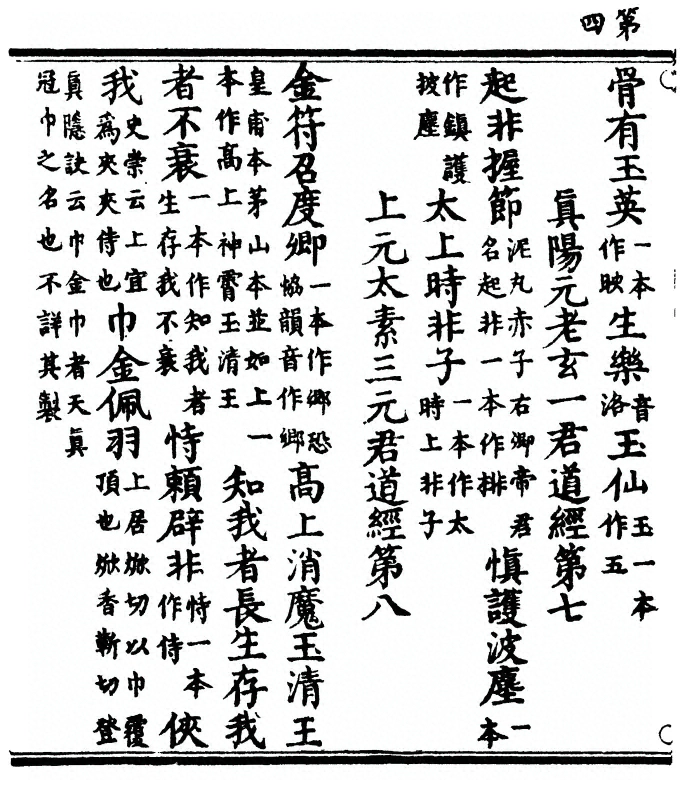 第四
骨有玉英一本作映生樂音洛玉仙玉一本作五
眞陽元老玄一君道經第七
起非握節泥丸赤子右卿帝君名起非一本作排慎護波塵一本
作鎮護披塵太上時非子一本作太時上非子
上元太素三元君道經第八
金符召度卿一本作鄉恐協韻音作鄉高上消魔玉清王
皇甫本茅山本並如上一本作高上神霄玉清王知我者長生存我
者不衰一本作知我者生存我不衰恃賴辟非恃一本作侍俠
我史崇云上宜爲夾夾侍也巾金佩羽上居焮切以巾覆頂也焮香靳切登
眞隱訣云巾金巾者天眞冠巾之名也不詳其製